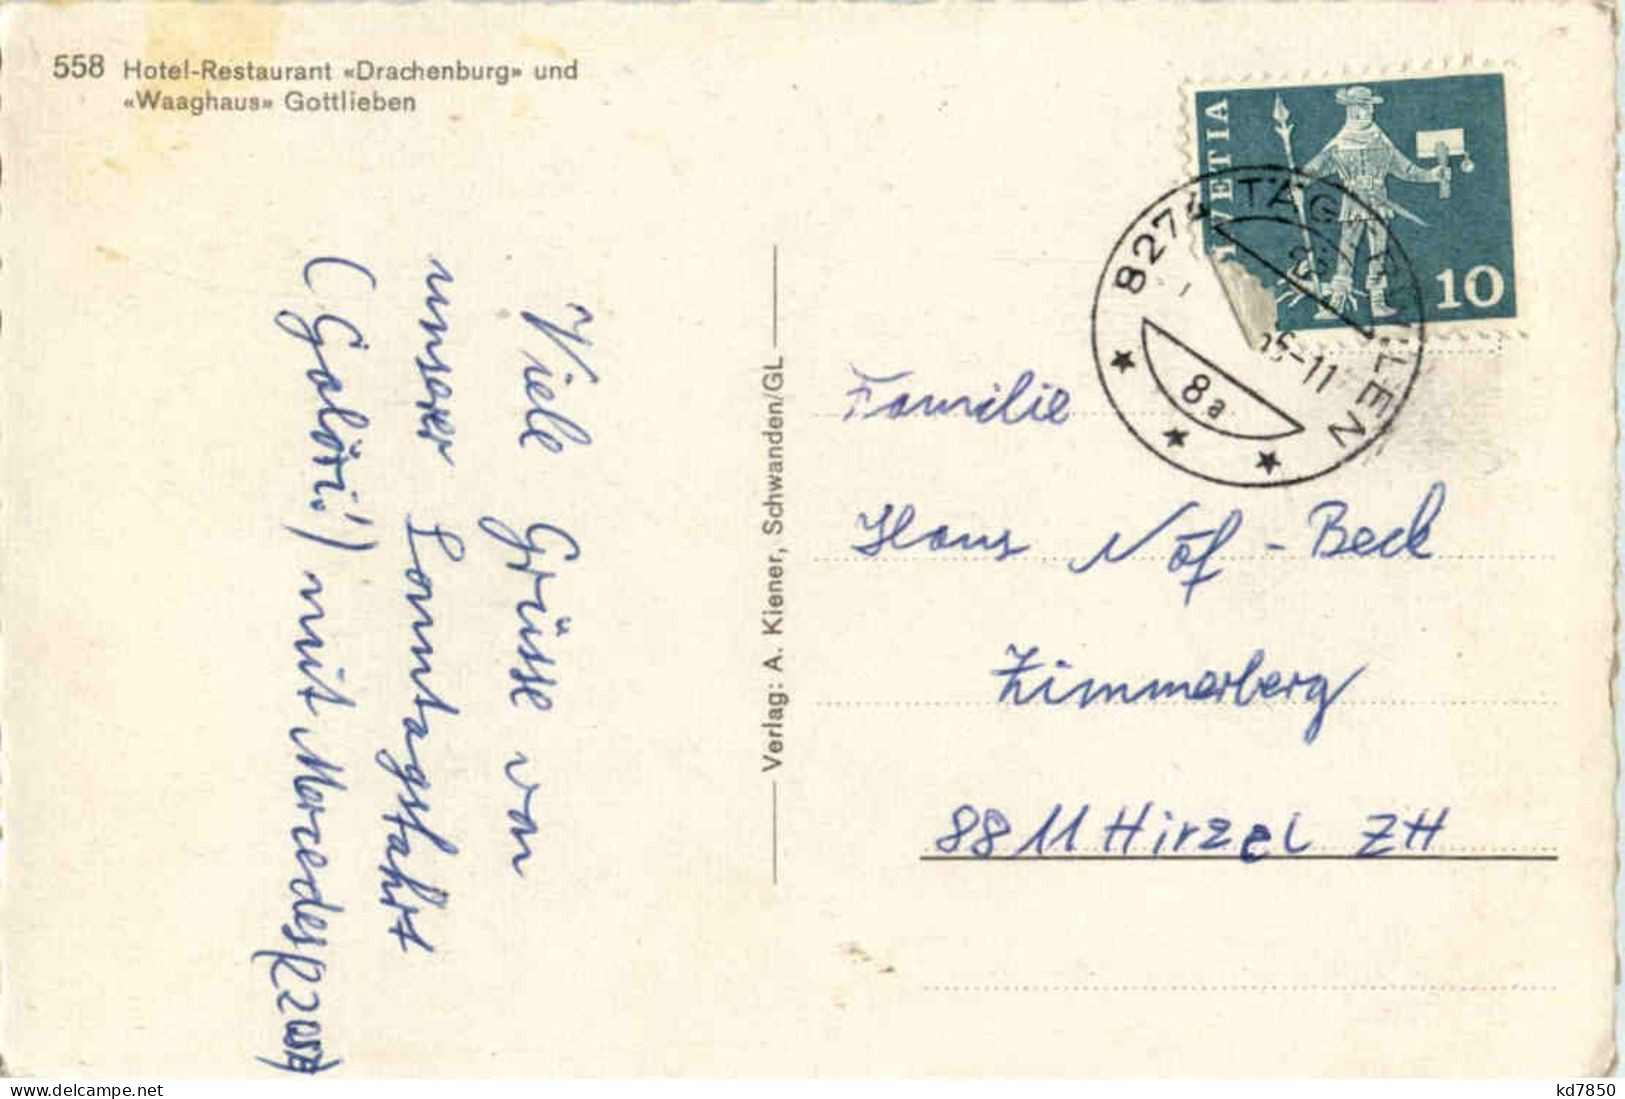 558 Hotel-Restaurant «Drachenburg» und
«Waaghaus» Gottlieben
HELVETIA
10
8274 TÄGERWILEN
-11
8a
Viele Grüsse von
unserer Sonntagsfahrt
(Galöri!) mit Mercedes
Verlag: A. Kiener, Schwanden/GL
Familie
Hans Näf-Beck
Zimmerberg
8811 Hirzel ZH
kd7850